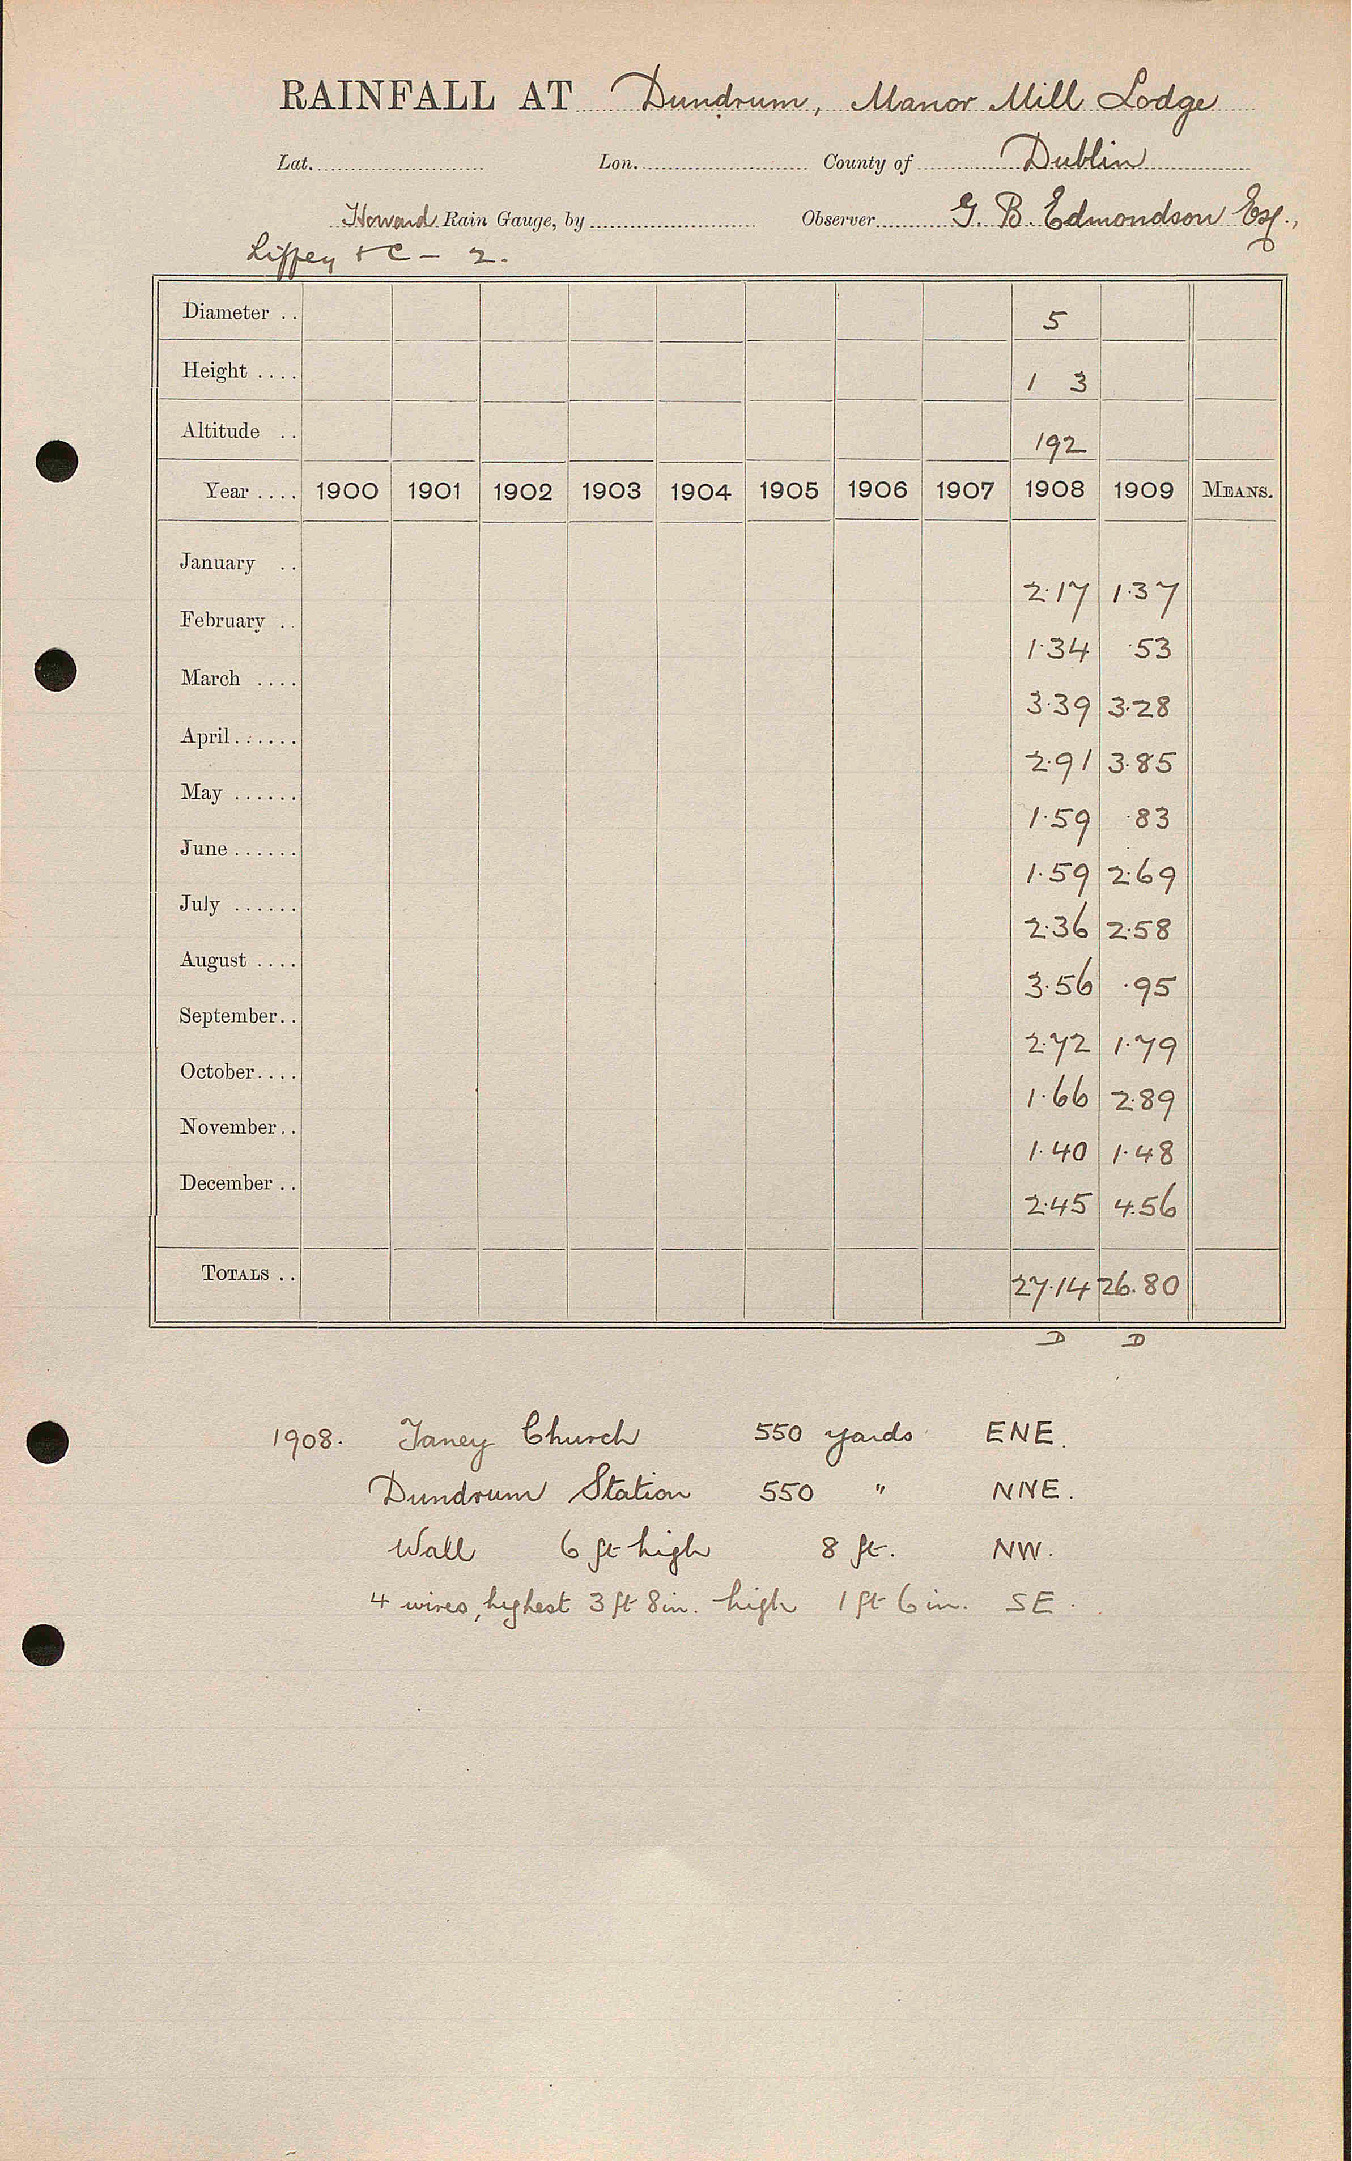 RAINFALL AT Dundrum, Manor Mill Lodge
Lat. Lon. County of Dublin
Howard Rain Gauge, by Observer G. B. Edmondson Esq.,
Liffey + C - 2. D
Diameter .. 5
Height .... 1 3
Altitude .. 192
Year .... 1900 1901 1902 1903 1904 1905 1906 1907 1908 1909 MEANS.
January .. 2.17 1.37
February .. 1.34 .53
March .... 3.39 3.28
April...... 2.91 3.85
May ...... 1.59 .83
June ...... 1.59 2.69
July ...... 2.36 2.58
August .... 3.56 .95
September.. 2.72 1.79
October.... 1.66 2.89
November.. 1.40 1.48
December .. 2.45 4.56
TOTALS .. 27.14 26.80
D D
1908. Taney Church 550 yards ENE.
Dundrum Station 550 " NNE.
Wall 6 ft high 8 ft. NW.
4 wires, highest 3 ft 8 in. high 1 ft 6 in. SE.